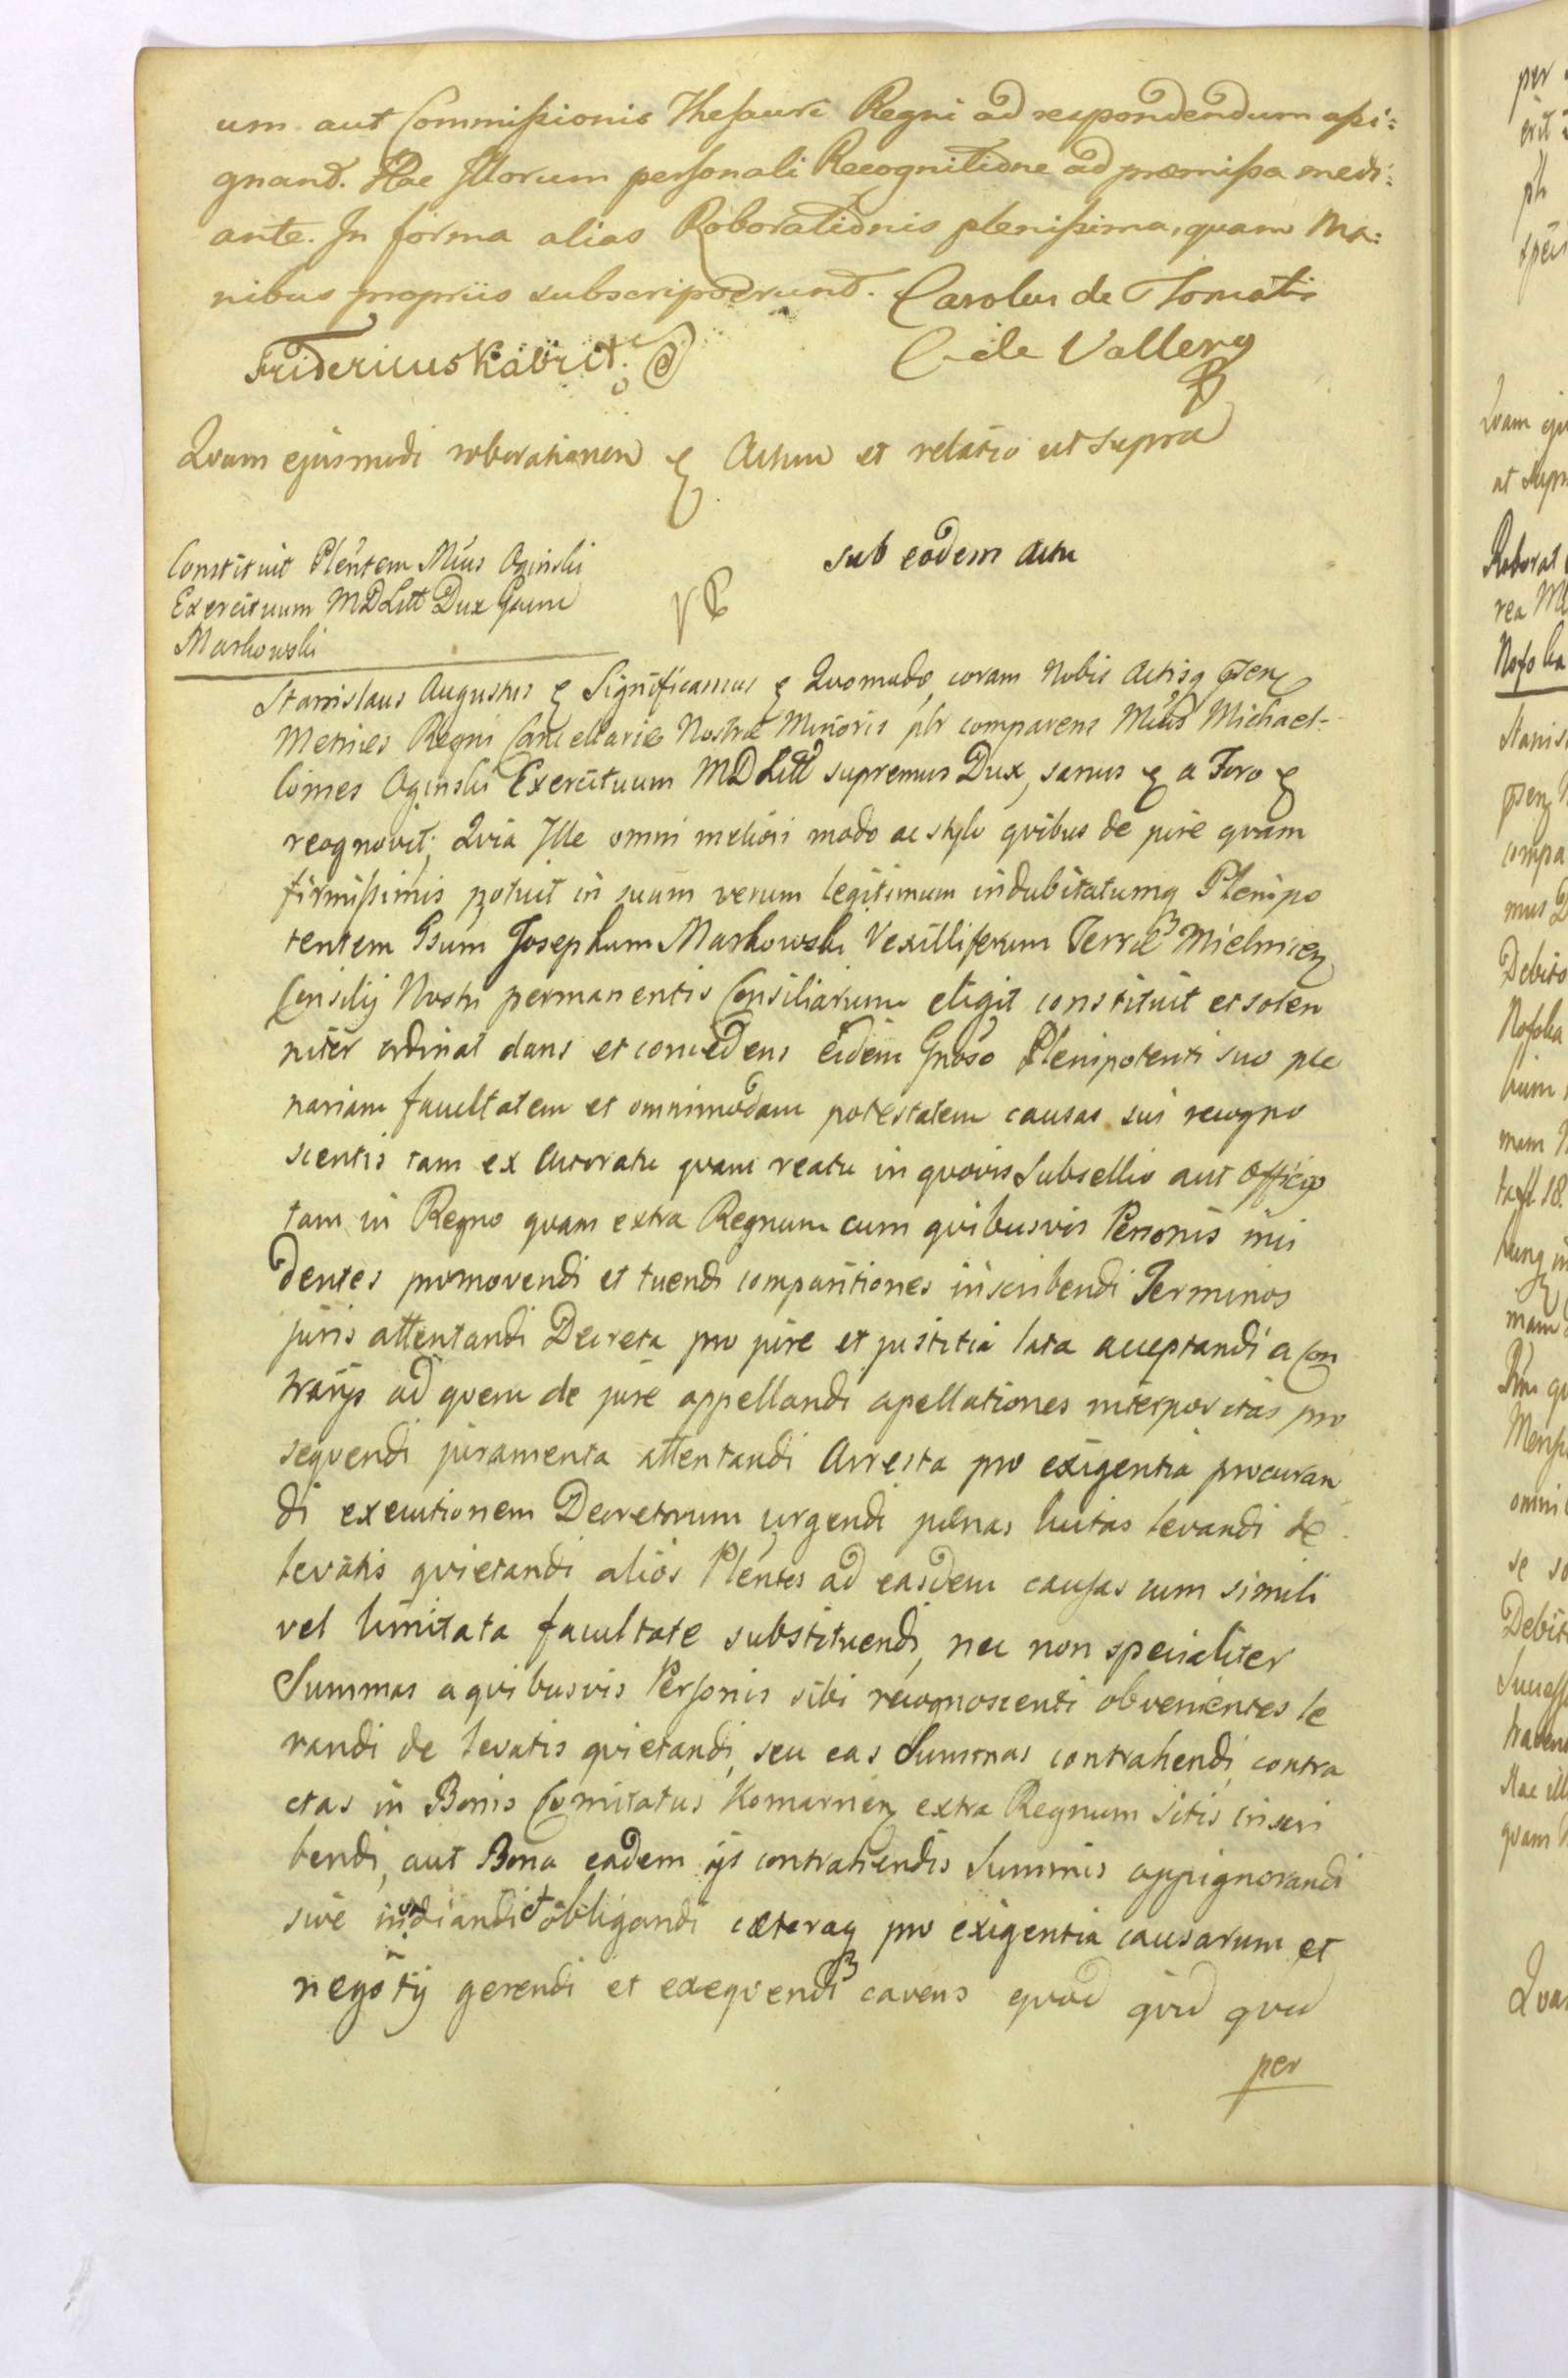 um aut Commissionis Thesauri Regni ad respondendum assi:
gnand. Hac Illorum personali Recognitione ad præmissa medi:
ante. In forma alias Roborationis plenissima, quam Ma:
nibus propriis subscripserunt. Carolus de Tomatis
Fridericus Kabrit. C. de Vallery
Quam ejusmodi roborationem & Actum et relatio ut supra
sub eodem Actu
Constituit Plentem Mcus Oginski
Exercituum MDLitt Dux Gsum
Markowski
Stanislaus Augustus & Significamus & Quomodo coram Nobis Actisq psen
Metrices Regni Cancellariæ Nostræ Minoris plr comparens Mcus Michael
Comes Oginski Exercituum MDLitt supremus Dux, sanus & a Foro &
recognovit; Quia Ille omni meliori modo ac stylo quibus de jure quam
firmissimis potuit in suum verum legitimum indubitatumq Plenipo
tentem Gsum Josephum Markowski Vexilliferum Terræ Mielnicen
Consilij Nostri permanentis Consiliarium eligit constituit et solen
niter ordinat dans et concedens eidem Gnoso Plenipotenti suo ple
nariam facultatem et omnimodam potestatem causas sui recogno
scentis tam ex Actoratu quam reatu in quovis Subsellio aut Officio
tam in Regno quam extra Regnum cum quibusvis Personis inci
dentes promovendi et tuendi comparitiones inscribendi Terminos
juris attentandi Decreta pro jure et justitia lata acceptandi a Con
trarijs ad quem de jure appellandi apellationes interpositas pro
sequendi juramenta attentandi Arresta pro exigentia procuran
di executionem Decretorum urgendi pœnas luitas levandi de
levatis quietandi alios Plentes ad easdem causas cum simili
vel limitata facultate substituendi, nec non specialiter
Summas a quibusvis Personis sibi recognoscenti obvenientes le
vandi de levatis quietandi, seu eas Summas contrahendi contra
ctas in Bonis Comitatus Komarnien extra Regnum sitis inscri
bendi, aut Bona eadem ijs contrahendis Summis oppignorandi
sive obligandi cæteraq pro exigentia causarum et
negotij gerendi et exequendi cavens quod quid quid
per